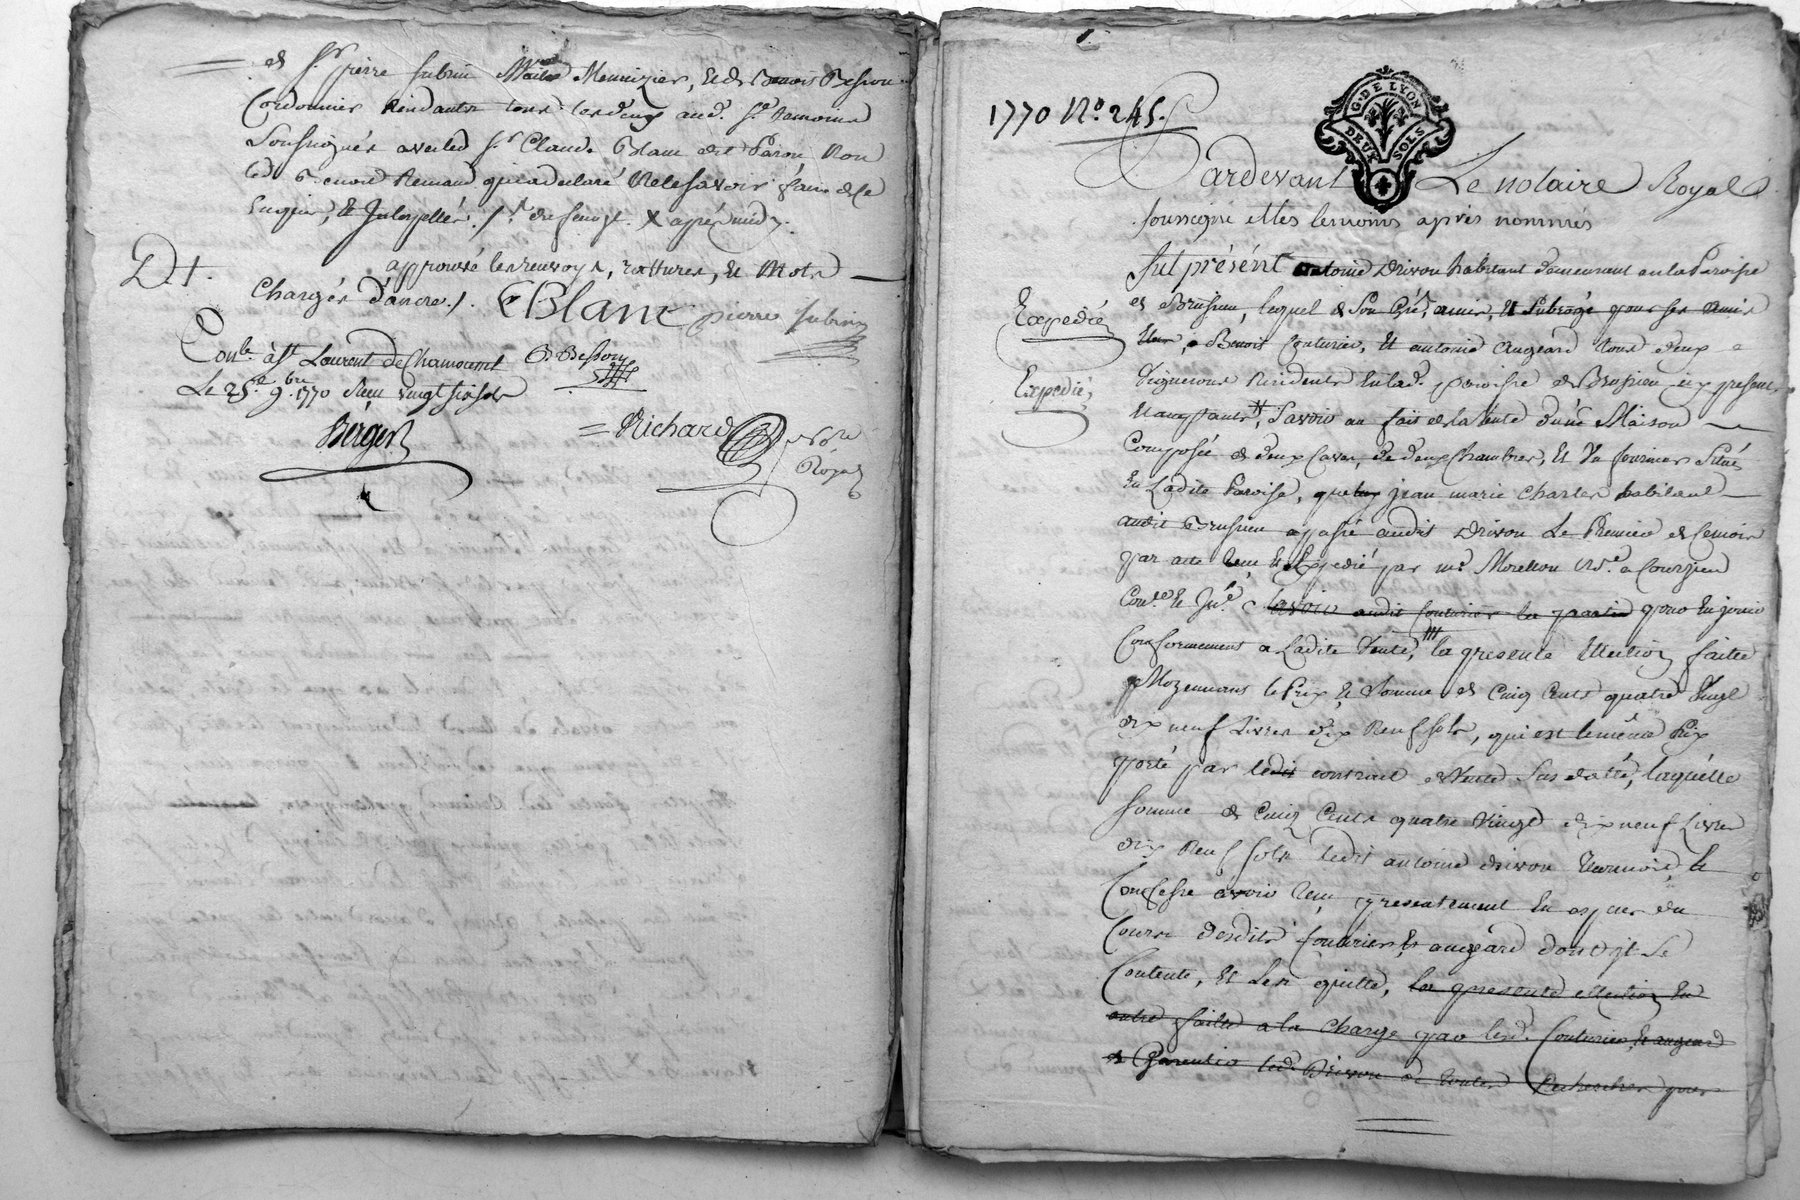 et Sr pierre subrin Maitre Menuizier, et de Benoit Besson
Cordonnier Residants tous les deux aud. St
Soussignés avec led Sr Claude Blanc dit Paron Non
led Benoit Renaud qui a declaré Ne le savoir faire de ce
Enquis, et Interpellés ./. X aprés midy.
Dt.
approuvé les renvoys, rattures, et Mots
Chargés d'ancre./. CBlanc pierre subrin
Conlé à St Laurent de Chamousset B Besson
Le 25e 9bre 1770 Reçu vingt six sols
Berger
= Richard Nore
Royal
1770 No. 245.
G. DE LYON
DEUX SOLS
Pardevant Le notaire Royal
soussigné et les temoins aprés nommés
fut présént antoine Drivon habitant demeurant en la Paroisse
Expedié
de Brussieu, lequel de son Gré, amis, et subrogé pour ses amis
Eleus, a Benoit Couturier, et antoine augeard tous deux
Expedié,
Vignerons Residents en lad. paroisse de Brussieu icy presents
et acceptants, Savoir au fait de la Vente d'une Maison
Composée de deux Caves, de deux Chambres, et Un fournier Situé
En Ladite Paroisse, que jean marie Charles habitant
audit Brussieu a passé audit Drivon Le Premier de Ce mois
par acte Reçu et Expedié par me Morellon Nre a Courzieu
Conlé et Iné, savoir audit Couturier la partie pour En jouir
Conformement a Ladite Vente, la presente Ellection faitte
Moyennant le Prix et Somme de Cinq Cents quatre Vingt
dix neuf Livres dix Neuf sols, qui est le même Prix
porté par ledit contract de Vente sus datté, laquelle
somme de Cinq Cents quatre Vingt dix neuf Livres
dix Neuf sols ledit antoine drivon Reconnoit, et
Confesse avoir Reçu presentement En espèces du
Cours desdits Couturier, et augeard dont il se
Contente, et Les En quitte, la presente ellection En
outre faitte a la Charge par lesd. Couturier, et augeard
de Garentir led. Drivon de toutes Recherches pour